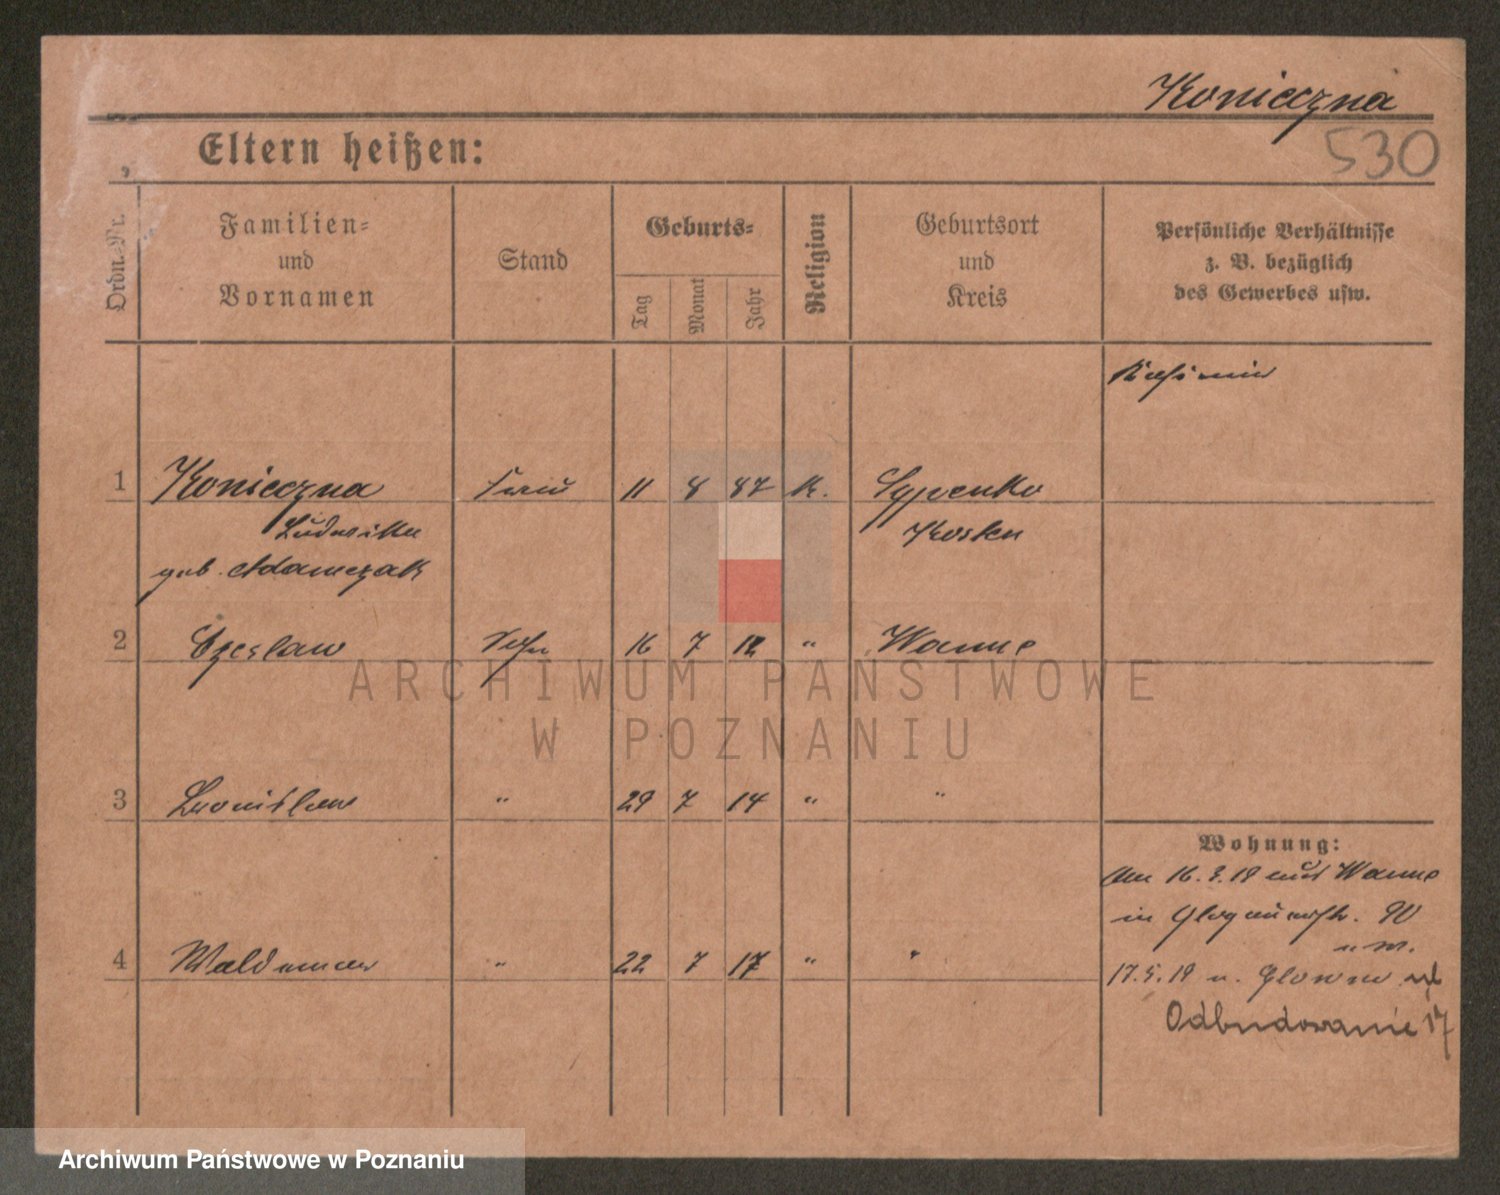 Konieczna
530
Eltern heißen:
Ordn.-Nr.
Familien-
und
Vornamen
Stand
Geburts-
Tag
Monat
Jahr
Religion
Geburtsort
und
Kreis
Persönliche Verhältnisse
z. B. bezüglich
des Gewerbes usw.
1 Konieczna 11 8 87 K.
Ludwika Kosten
geb. Adamczak
2 Czeslaw Sohn 16 7 12 " Wanne
ARCHIWUM PAŃSTWOWE
W POZNANIU
3 " 29 7 14 " "
Wohnung:
Am 16. 3. 19 aus Wanne
in 90
4 Waldemar " 22 7 17 " "
17.5.19 n.
Odbudowanie 17
Archiwum Państwowe w Poznaniu